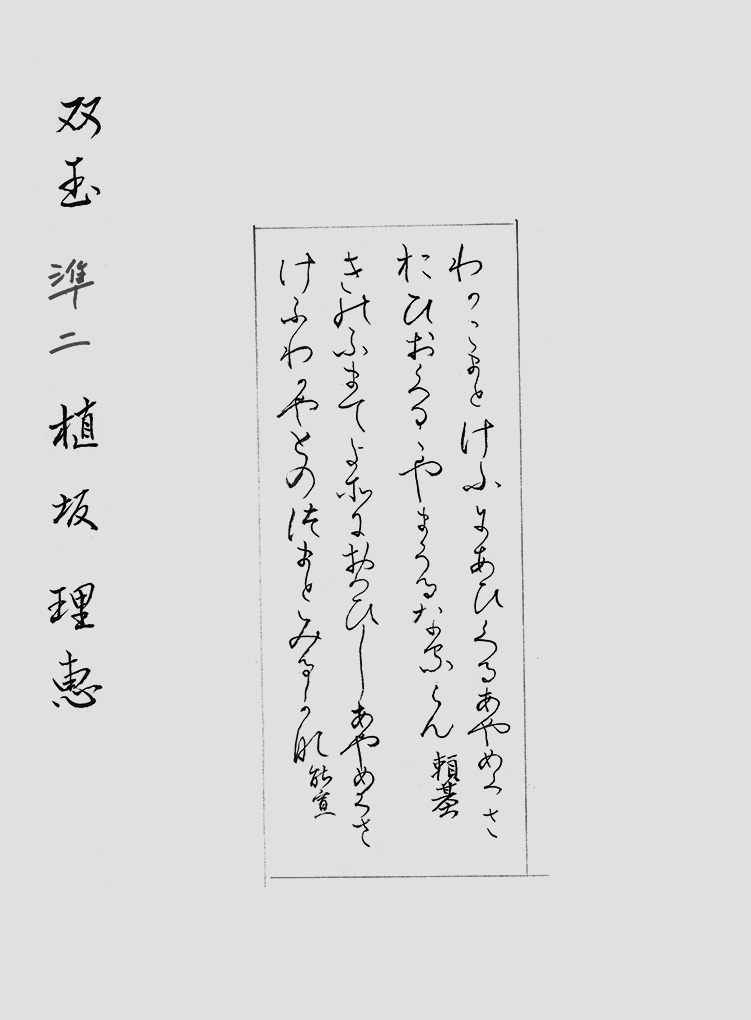 わかこまとけふにあひくるあやめくさ
おひおくるゝやまくるなるらん 頼基
きのふまてよそにおもひしあやめくさ
けふわかやとのつまとみるかな 能宣
双玉 準二 植坂 理恵